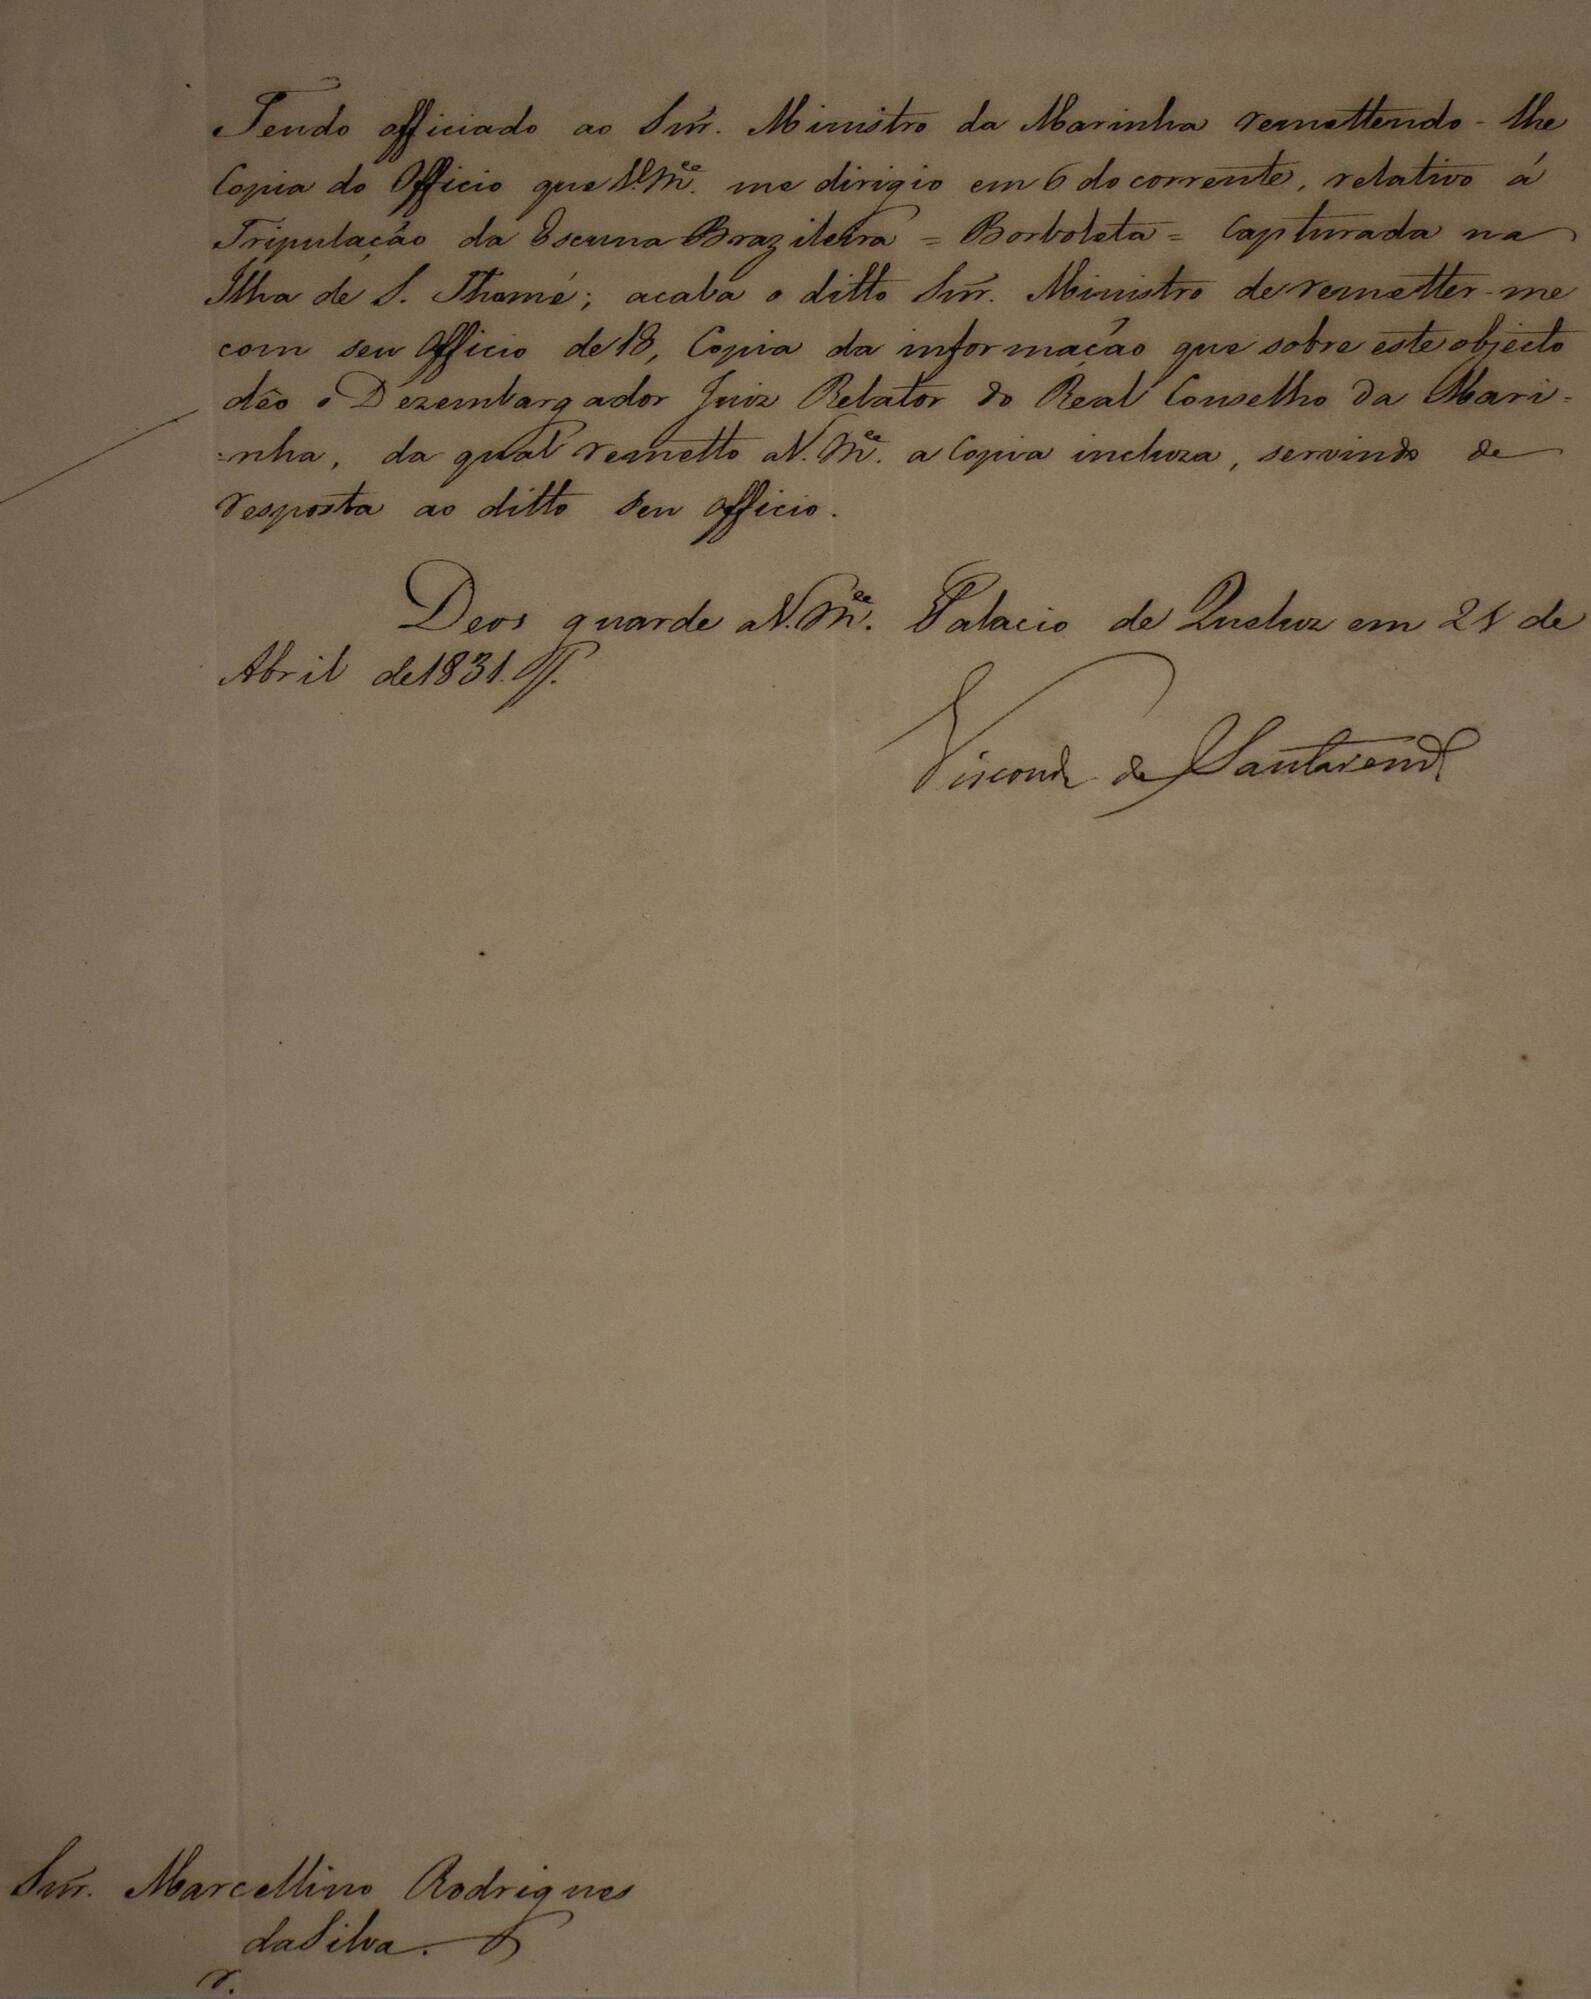 Tendo officiado ao Snr. Ministro da Marinha remettendo-lhe
Copia do Officio que V. M.ce me dirigio em 6 do corrente, relativo á
Tripulação da Escuna Brazileira = Borboleta = Capturada na
Ilha de S. Thomé; acaba o ditto Snr. Ministro de remetter-me
com seu Officio de 18, Copia da informação que sobre este objecto
dêo o Dezembargador Juiz Relator do Real Conselho da Mari=
=nha, da qual remetto a V. M.ce a Copia incluza, servindo de
resposta ao ditto seu Officio.
Deos guarde a V. M.ce Palacio de Queluz em 21 de
Abril de 1831.
Visconde de Santarem
Snr. Marcellino Rodrigues
da Silva.